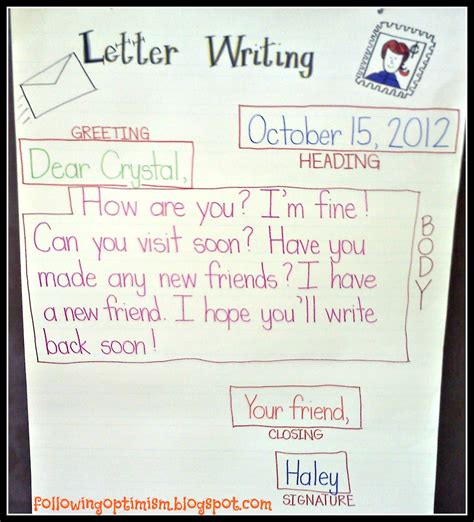 Letter Writing
GREETING
October 15, 2012
HEADING
Dear Crystal,
How are you? I'm fine!
Can you visit soon? Have you
made any new friends? I have
a new friend. I hope you'll write
back soon!
BODY
Your friend,
CLOSING
Haley
SIGNATURE
followingoptimism.blogspot.com